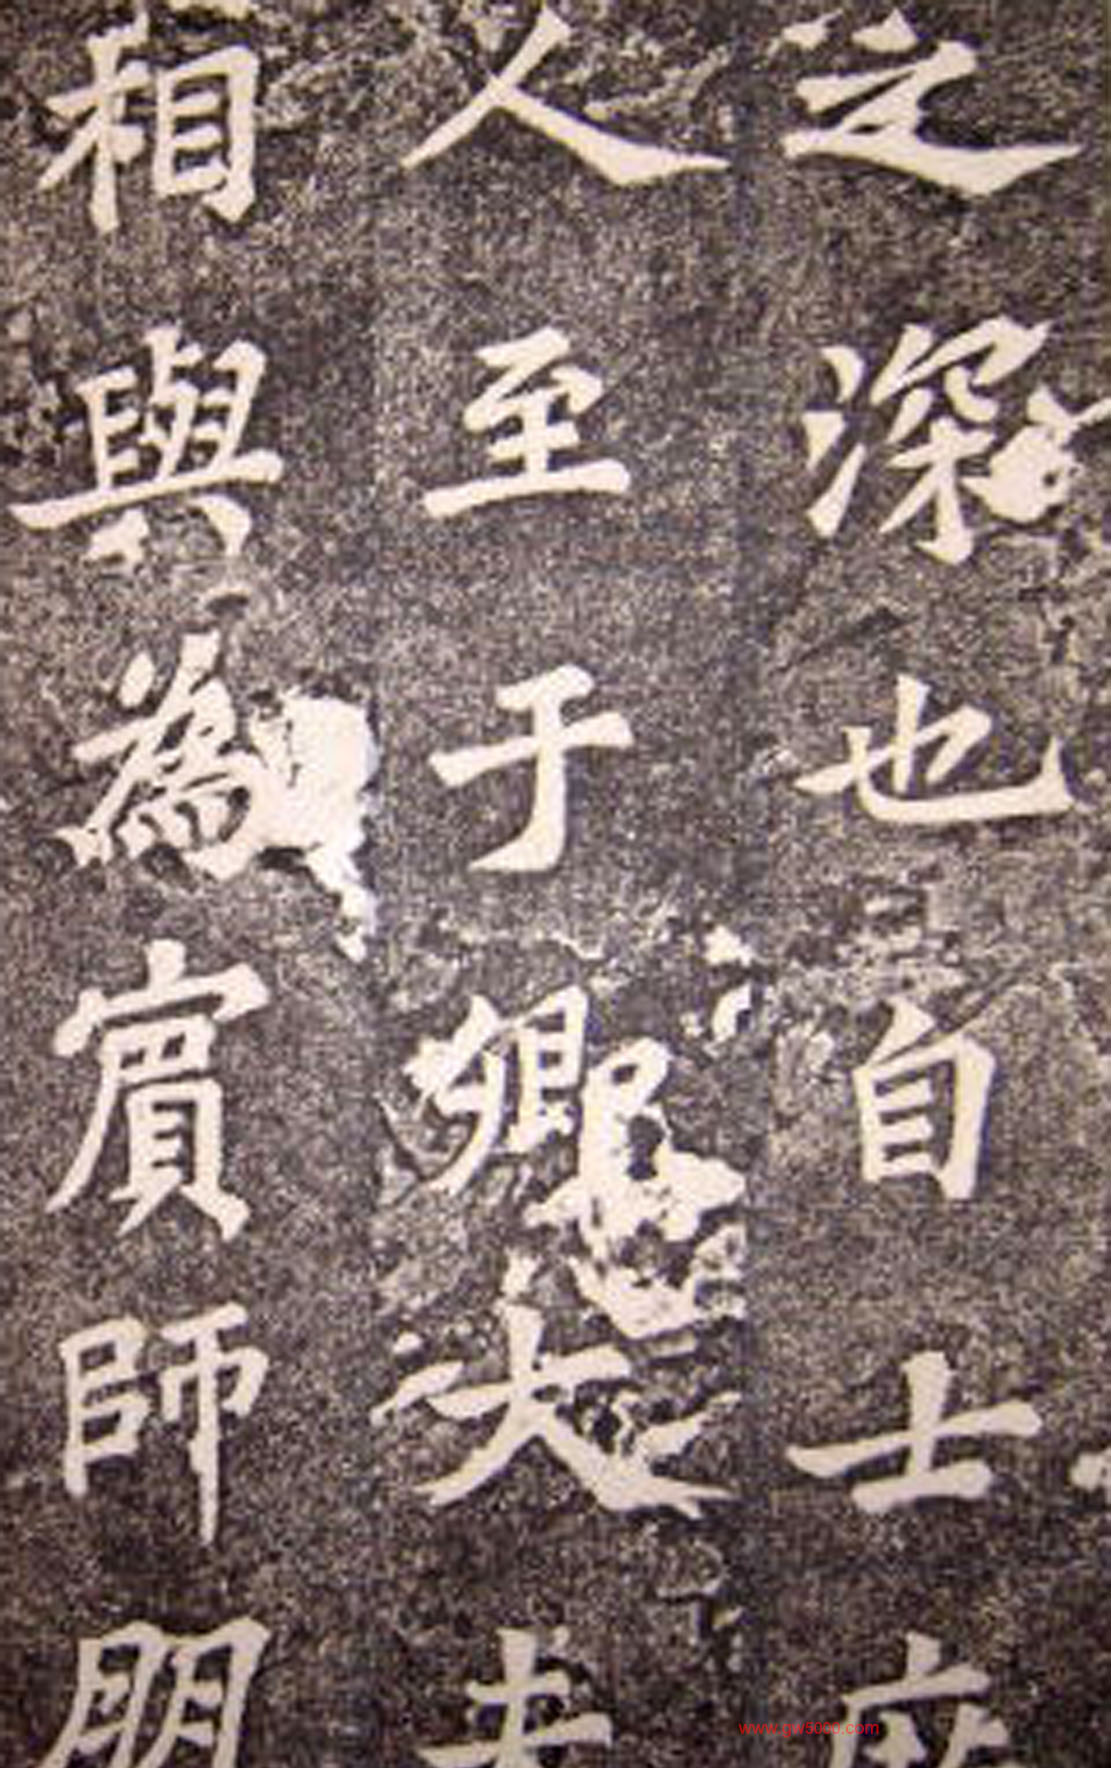 之深也自士庶
人至于卿大夫
相與為賓師朋
www.gw5000.com